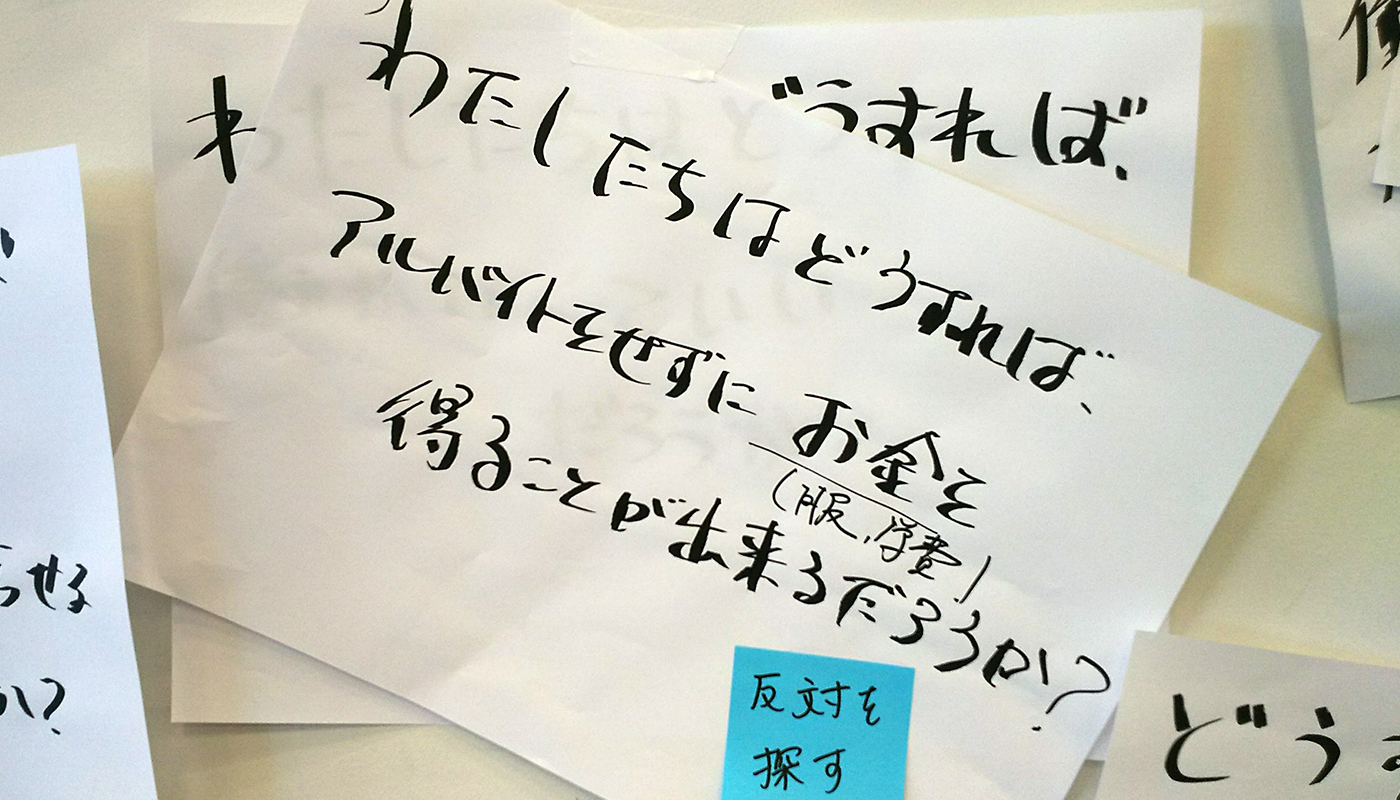 わたしたちはどうすれば、
アルバイトをせずにお金を
(服、学費)
得ることが出来るだろうか?
反対を
探す
わ
うすれば、
らせる
か?
どう